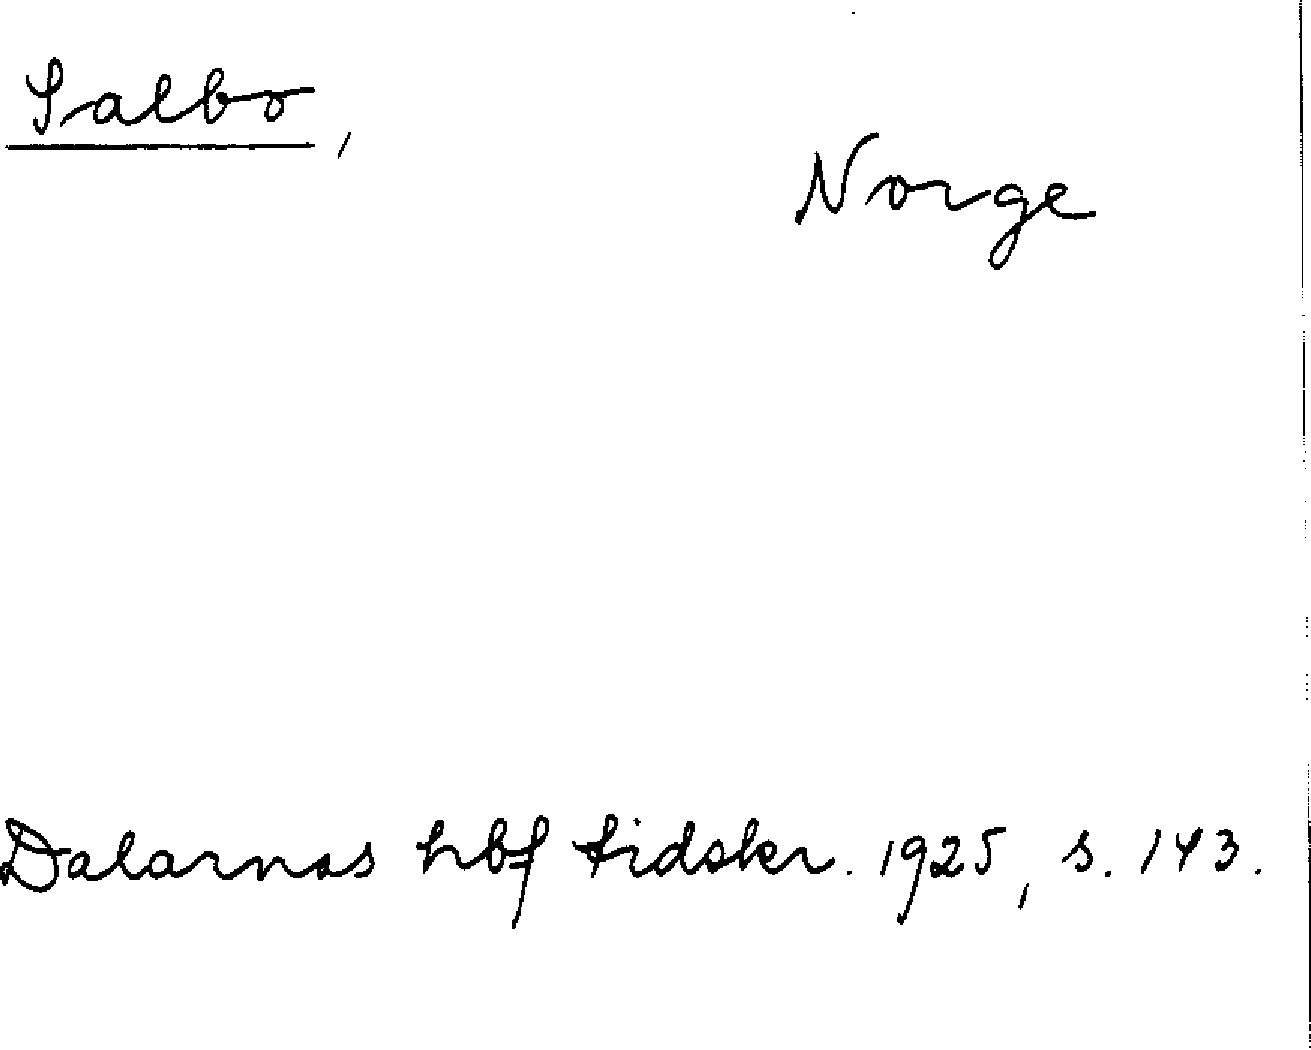 Salbo,
Norge
Dalarnas hbf tidskr. 1925, s. 143.